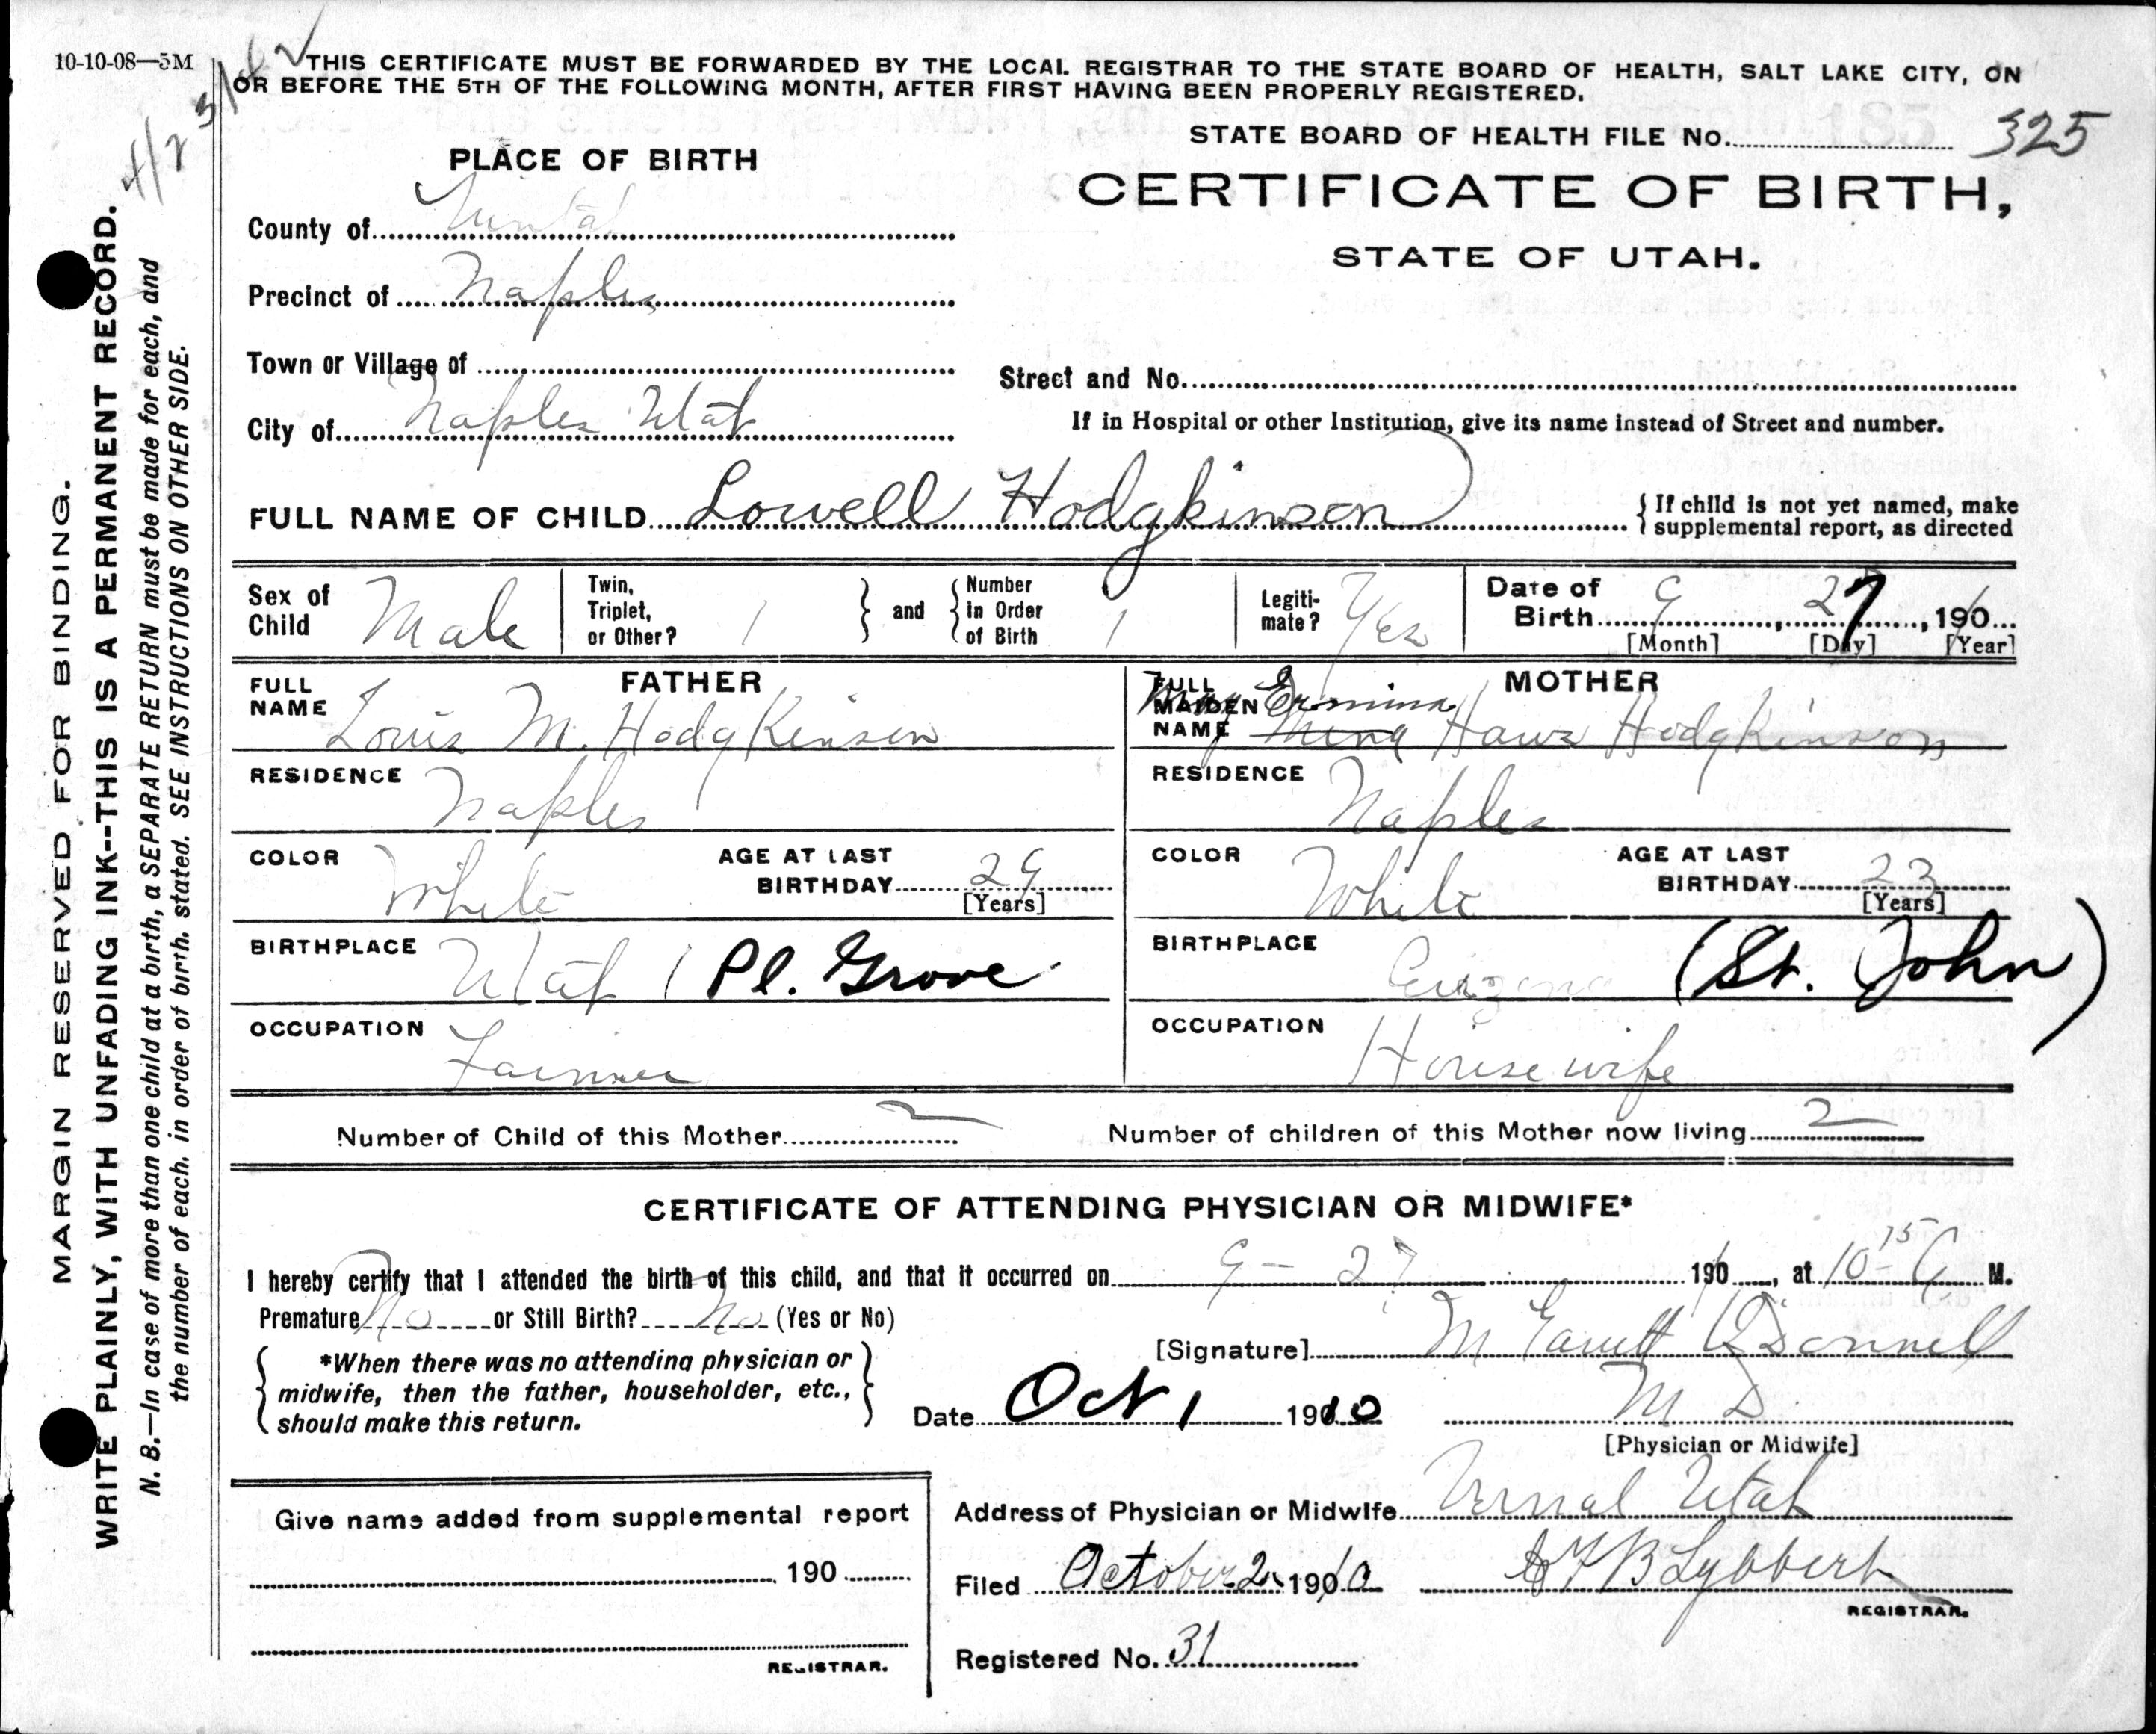 10-10-08—5M
THIS CERTIFICATE MUST BE FORWARDED BY THE LOCAL REGISTRAR TO THE STATE BOARD OF HEALTH, SALT LAKE CITY, ON
OR BEFORE THE 5TH OF THE FOLLOWING MONTH, AFTER FIRST HAVING BEEN PROPERLY REGISTERED.
STATE BOARD OF HEALTH FILE No. 325
PLACE OF BIRTH
CERTIFICATE OF BIRTH,
STATE OF UTAH.
County of
Precinct of Naples
Town or Village of
Street and No.
City of Naples Utah
If in Hospital or other Institution, give its name instead of Street and number.
FULL NAME OF CHILD Lowell Hodgkinson { If child is not yet named, make supplemental report, as directed
Sex of Child Male
Twin, Triplet, or Other? 1 } and { Number In Order of Birth 1
Legitimate? Yes
Date of Birth 9, 27, 190
[Month] [Day] [Year]
FATHER
FULL NAME Louis M. Hodgkinson
RESIDENCE Naples
COLOR White
AGE AT LAST BIRTHDAY 29 [Years]
BIRTHPLACE Utah ( Pl. Grove
OCCUPATION Farmer
MOTHER
FULL MAIDEN NAME Ermina Haws Hodgkinson
RESIDENCE Naples
COLOR White
AGE AT LAST BIRTHDAY 23 [Years]
BIRTHPLACE Arizona (St. John)
OCCUPATION Housewife
Number of Child of this Mother 2
Number of children of this Mother now living 2
CERTIFICATE OF ATTENDING PHYSICIAN OR MIDWIFE*
I hereby certify that I attended the birth of this child, and that it occurred on 9 - 27 190, at 10 15 A M.
Premature No or Still Birth? No (Yes or No)
[Signature] M
*When there was no attending physician or
midwife, then the father, householder, etc.,
should make this return.
Date Oct 1 1910
M D
[Physician or Midwife]
Give name added from supplemental report
190
REGISTRAR.
Address of Physician or Midwife Vernal Utah
Filed October 2 1910
Lybbert
REGISTRAR.
Registered No. 31
MARGIN RESERVED FOR BINDING.
WRITE PLAINLY, WITH UNFADING INK--THIS IS A PERMANENT RECORD.
N. B.—In case of more than one child at a birth, a SEPARATE RETURN must be made for each, and
the number of each, in order of birth, stated. SEE INSTRUCTIONS ON OTHER SIDE.